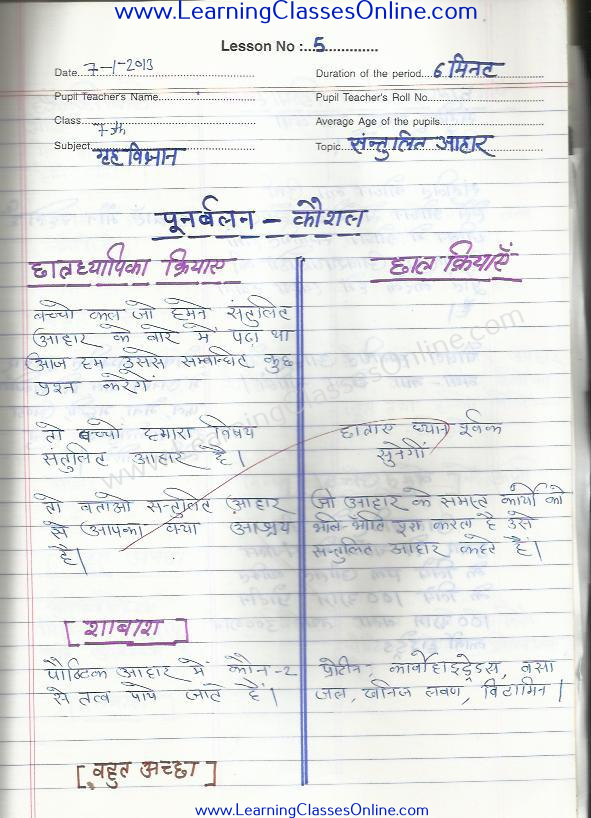 www.LearningClassesOnline.com
Lesson No :..5.............
Date 7-1-2013
Duration of the period 6 मिनट
Pupil Teacher's Name
Pupil Teacher's Roll No.
Class 7th
Average Age of the pupils
Subject गृह विज्ञान
Topic संन्तुलित आहार
पूनर्बलन - कौशल
छात्रध्यापिका क्रियाए
छात्र क्रियाएँ
बच्चो कल जो हमने संतुलित
आहार के बारे में पढ़ा था
आज हम उससे सम्बन्धित कुछ
प्रश्न करेगें
तो बच्चों हमारा विषय
संतुलित आहार है।
छात्राए ध्यान पूर्वक
सुनेगीं
तो बताओ सन्तुलित आहार
से आपका क्या आश्रय
है।
जो आहार के समस्त कार्यो को
भाल-भाँति पूरा करता है उसे
सन्तुलित आहार कहते हैं।
[शाबाश]
पौष्टिक आहार में कौन-2
से तत्व पाये जाते हैं।
प्रोटीन, कार्वोहाइड्रेडस, वसा
जल, खनिज लवण, विटामिन।
[बहुत अच्छा]
www.LearningClassesOnline.com
www.LearningClassesOnline.com